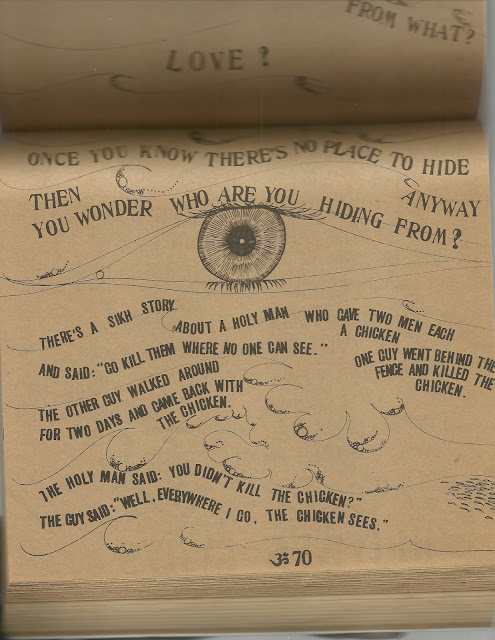 FROM WHAT?
LOVE?
ONCE YOU KNOW THERE'S NO PLACE TO HIDE
THEN ANYWAY
YOU WONDER WHO ARE YOU HIDING FROM?
THERE'S A SIKH STORY ABOUT A HOLY MAN WHO GAVE TWO MEN EACH
A CHICKEN
AND SAID: "GO KILL THEM WHERE NO ONE CAN SEE."
ONE GUY WENT BEHIND THE
FENCE AND KILLED THE
CHICKEN.
THE OTHER GUY WALKED AROUND
FOR TWO DAYS AND CAME BACK WITH
THE CHICKEN.
THE HOLY MAN SAID: YOU DIDN'T KILL THE CHICKEN?"
THE GUY SAID: "WELL, EVERYWHERE I GO, THE CHICKEN SEES."
ॐ 70